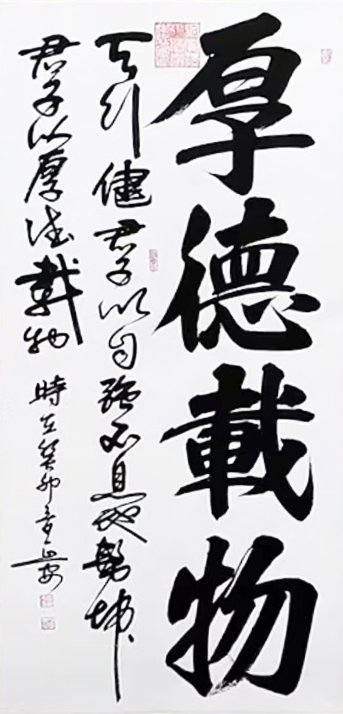 厚德載物
天行健君子以自強不息地勢坤
君子以厚德載物 時在癸卯